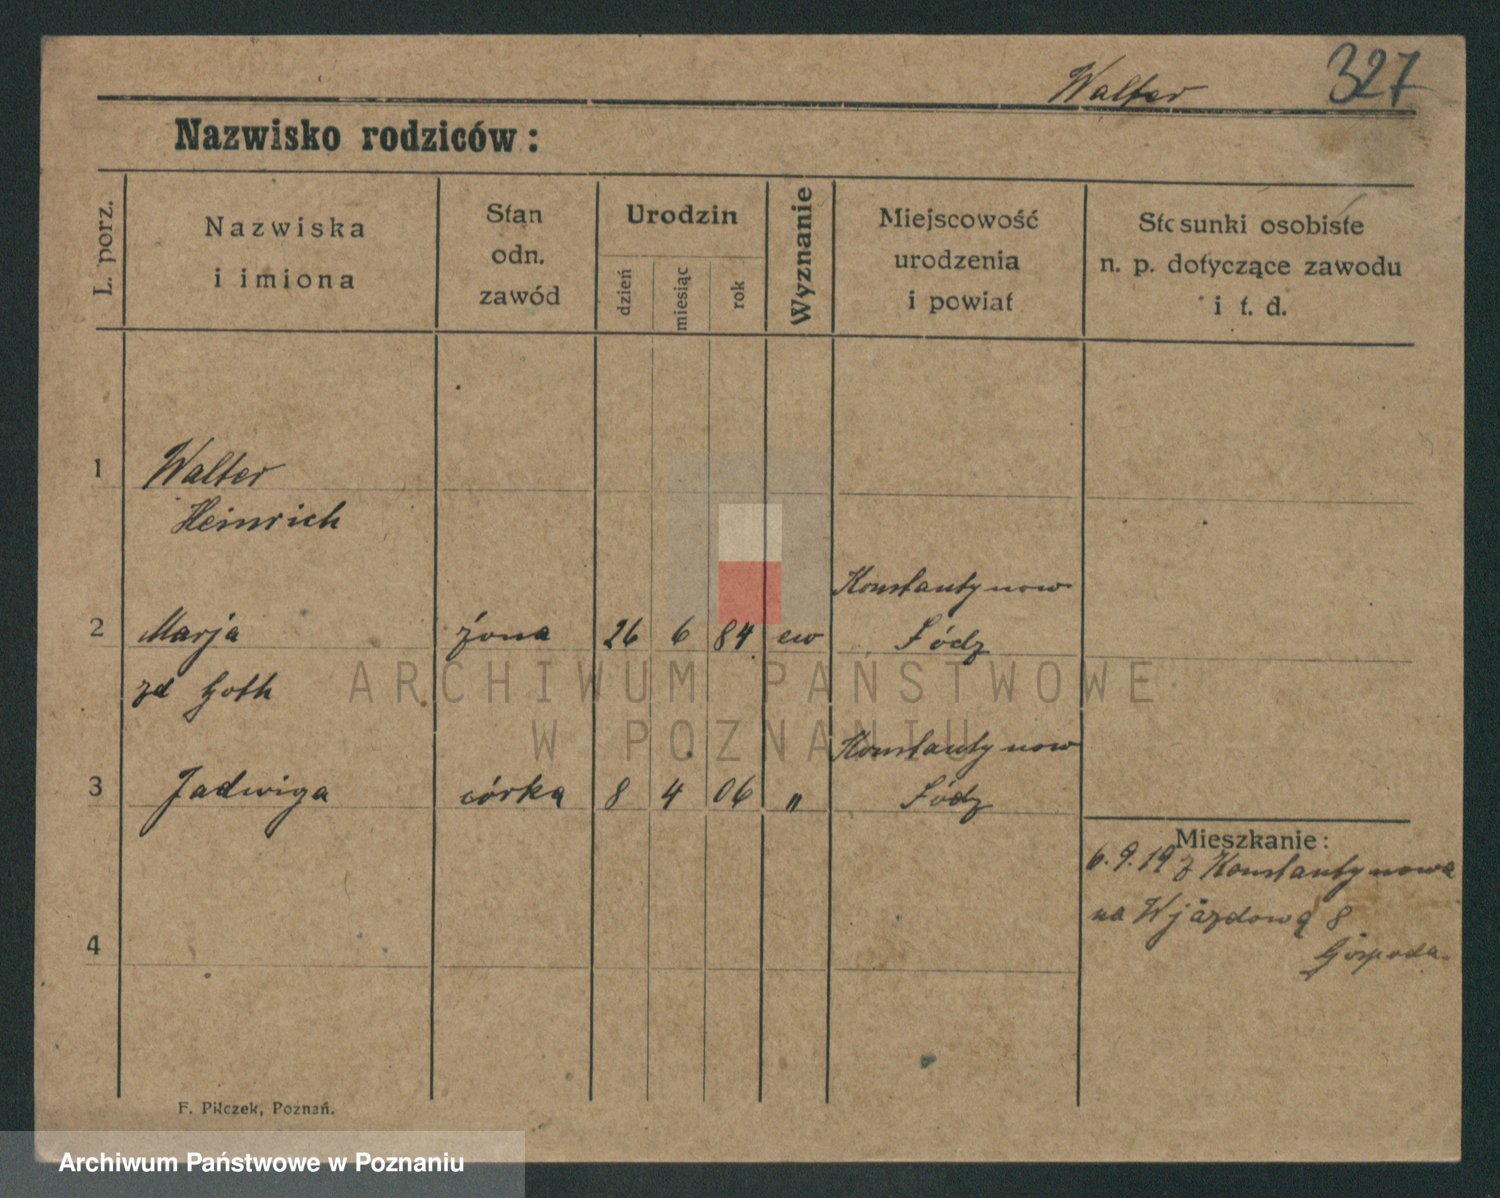 Walter 327
Nazwisko rodziców:
L. porz.
Nazwiska
i imiona
Stan
odn.
zawód
Urodzin
dzień
miesiąc
rok
Wyznanie
Miejscowość
urodzenia
i powiat
Stosunki osobiste
n. p. dotyczące zawodu
i t. d.
1 Walter
Heinrich
Konstantynow
2 Marja żona 26 6 84 ew Łódz
zd Goth
Konstantynow
3 Jadwiga córka 8 4 06 " Łódz
Mieszkanie:
6.9.19 z Konstantynowa
na Wjazdową 8
Gospoda.
4
F. Pilczek, Poznań.
ARCHIWUM PAŃSTWOWE
W POZNANIU
Archiwum Państwowe w Poznaniu